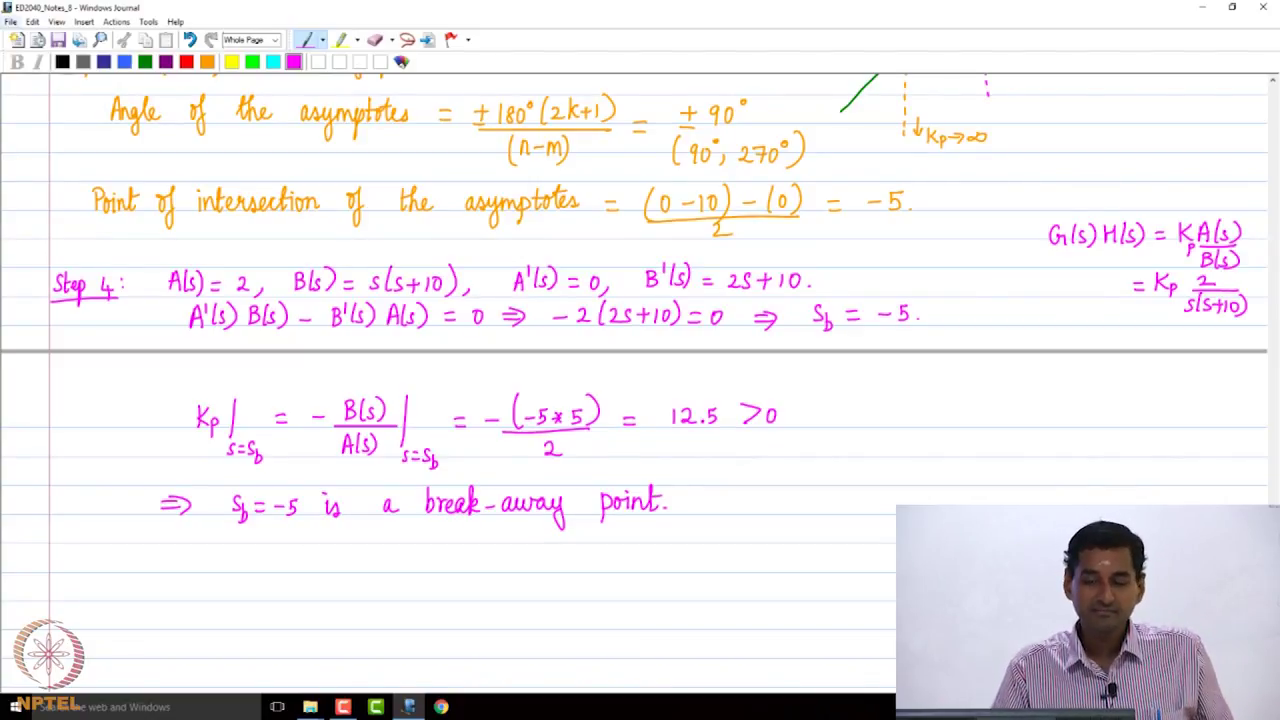 ED2040_Notes_8 - Windows Journal
File Edit View Insert Actions Tools Help
Whole Page
B I
Angle of the asymptotes = ±180°(2k+1)/(n-m) = ±90° (90°, 270°)
↓Kp→∞
Point of intersection of the asymptotes = (0-10)-(0)/2 = -5.
G(s)H(s) = Kp A(s)/B(s)
= Kp 2/s(s+10)
Step 4: A(s)=2, B(s)=s(s+10), A'(s)=0, B'(s)=2s+10.
A'(s)B(s) - B'(s)A(s) = 0 ⇒ -2(2s+10)=0 ⇒ Sb = -5.
Kp|s=Sb = - B(s)/A(s)|s=Sb = -(-5*5)/2 = 12.5 >0
⇒ Sb=-5 is a break-away point.
NPTEL
Search the web and Windows